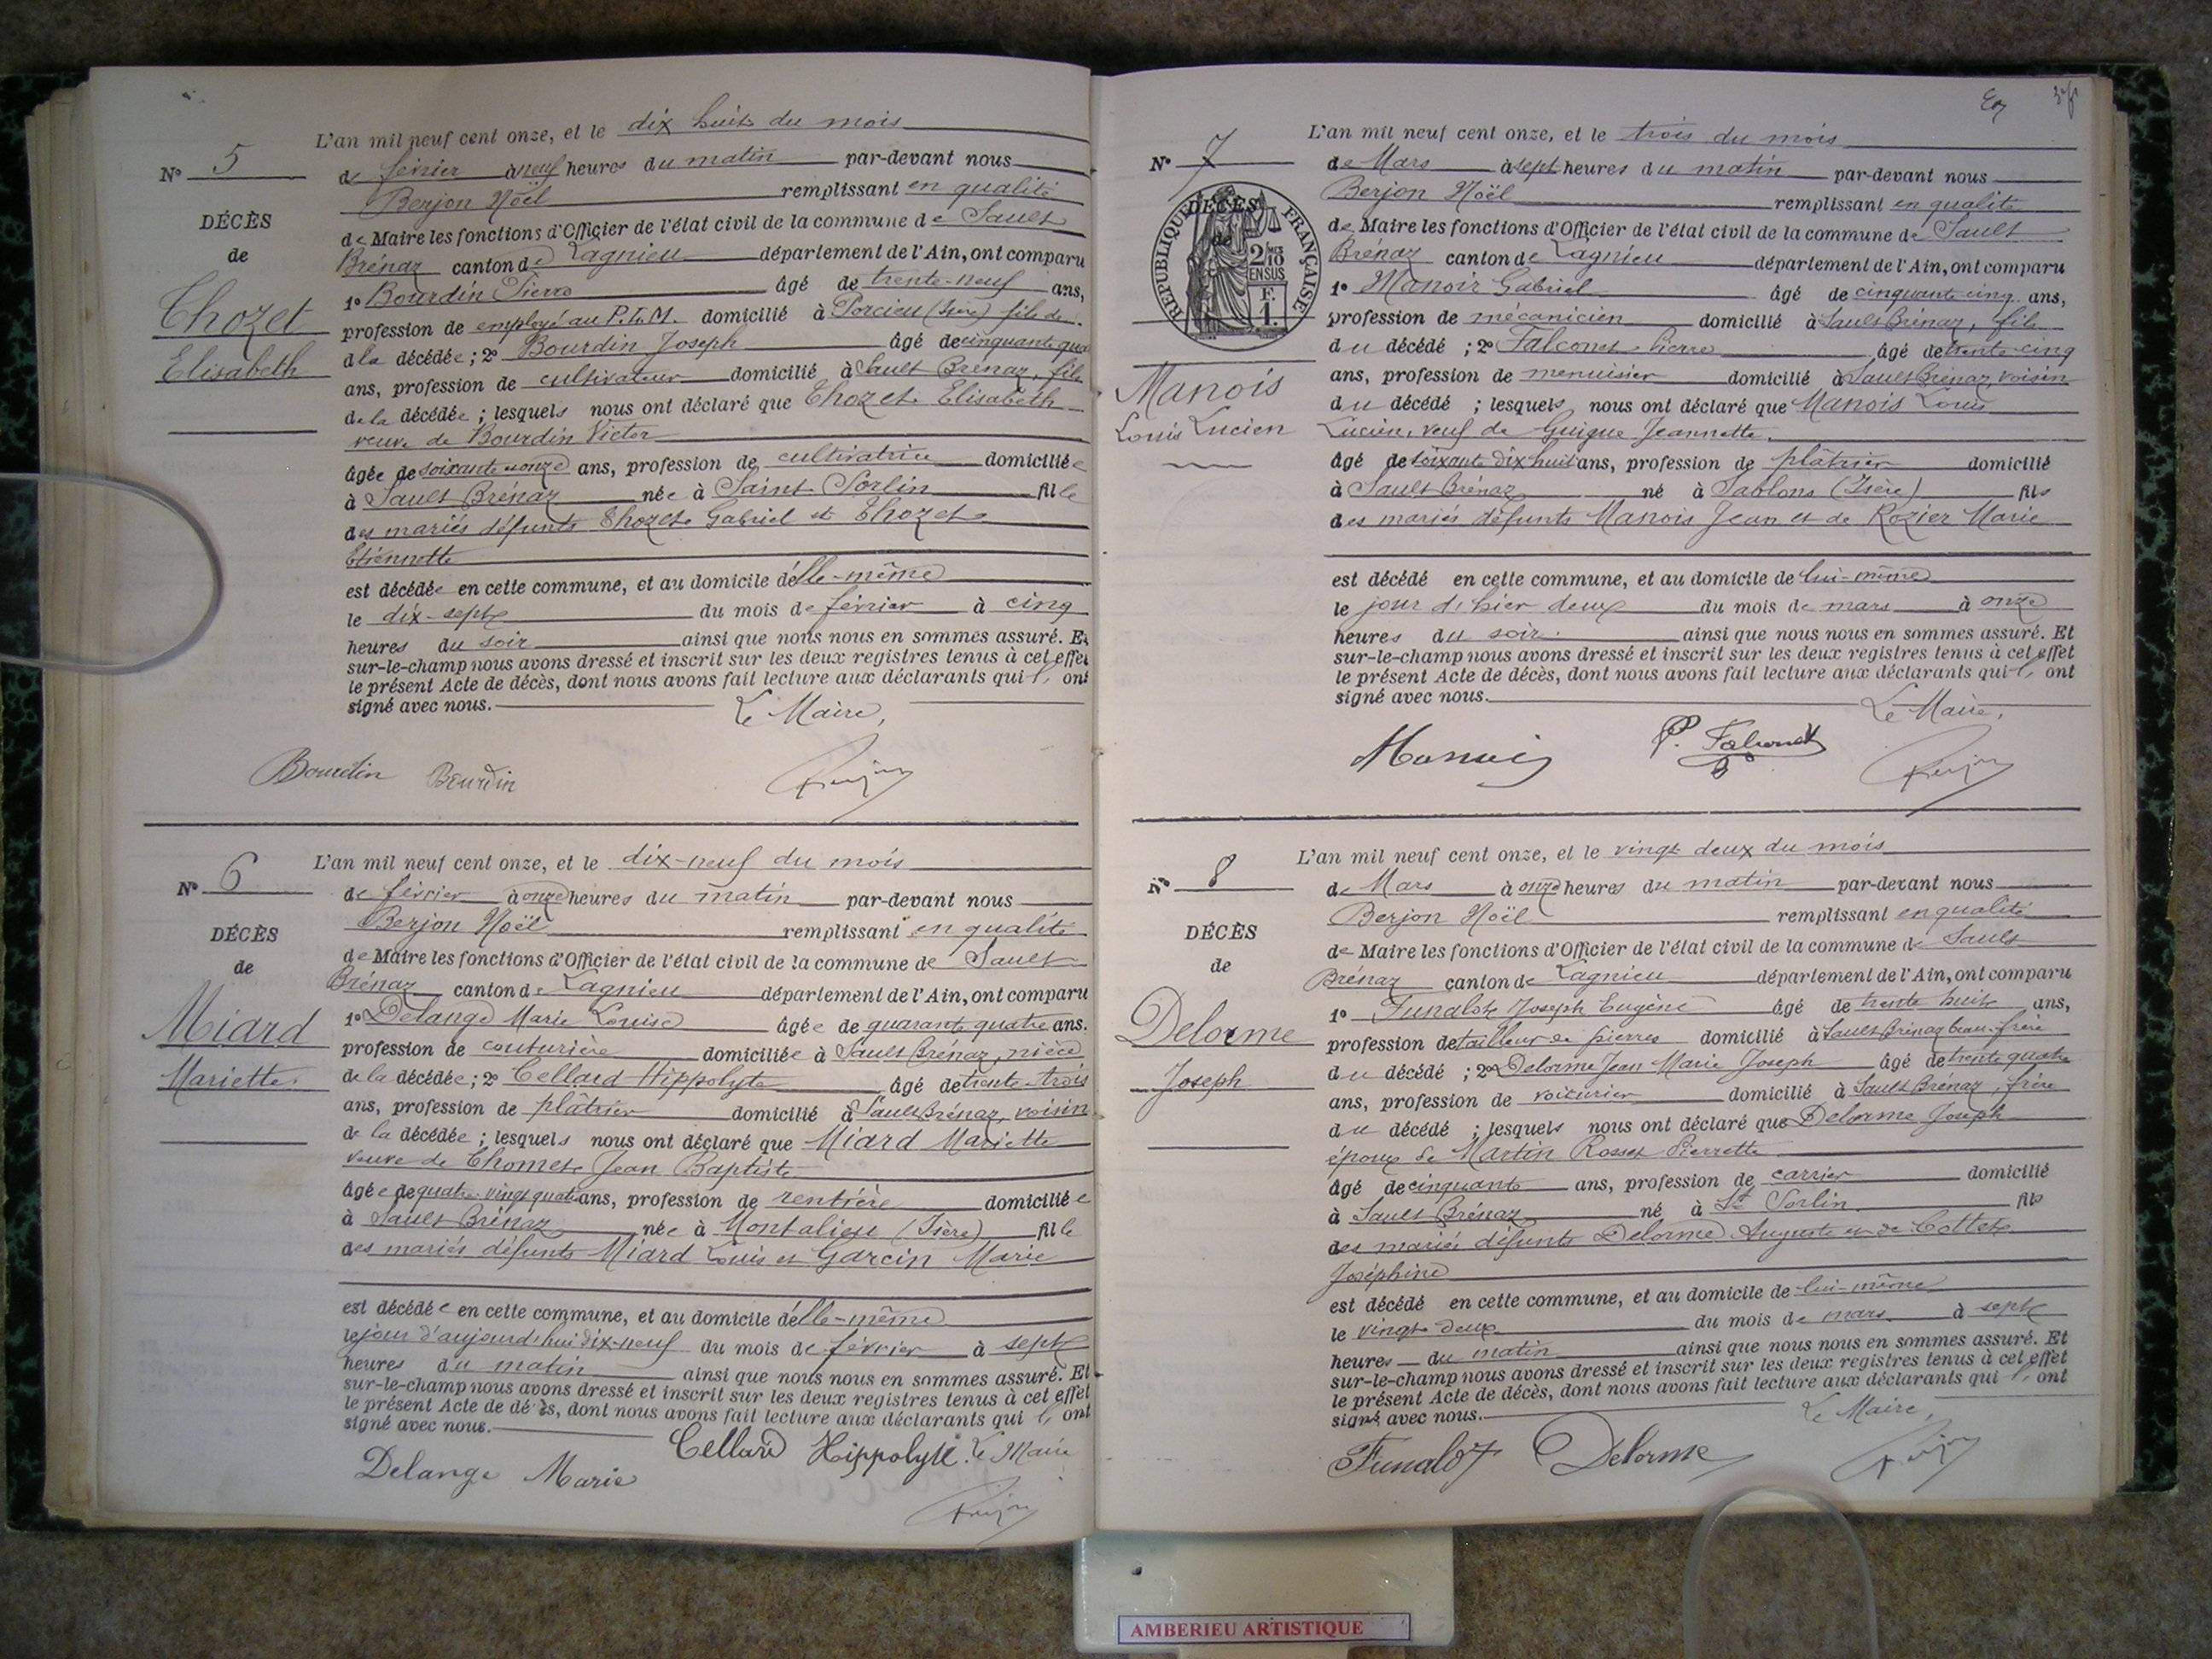 L'an mil neuf cent onze, et le dix huit du mois
N° 5
de février à neuf heures du matin par-devant nous
Berjon Noël remplissant en qualité
DÉCÈS
de Maire les fonctions d'Officier de l'état civil de la commune de Sault
de
Brénaz canton de Lagnieu département de l'Ain, ont comparu
Thozet
1° Bourdin Pierre âgé de trente-neuf ans,
profession de employé au P.L.M. domicilié à Porcieu (Isère) fils de
Elisabeth
de la décédée ; 2° Bourdin Joseph âgé de cinquante qua
ans, profession de cultivateur domicilié à Sault Brénaz, fils
de la décédée ; lesquels nous ont déclaré que Thozet Elisabeth
veuve de Bourdin Victor
âgée de soixante onze ans, profession de cultivatrice domiciliée
à Sault Brénaz née à Saint-Sorlin fille
des mariés défunts Thozet Gabriel et Thozet
Etiennette
est décédée en cette commune, et au domicile d'elle-même
le dix-sept du mois de février à cinq
heures du soir ainsi que nous nous en sommes assuré. Et
sur-le-champ nous avons dressé et inscrit sur les deux registres tenus à cet effet
le présent Acte de décès, dont nous avons fait lecture aux déclarants qui l' ont
signé avec nous. Le Maire,
Bourdin Bourdin Berjon
L'an mil neuf cent onze, et le dix-neuf du mois
N° 6
de février à onze heures du matin par-devant nous
Berjon Noël remplissant en qualité
DÉCÈS
de Maire les fonctions d'Officier de l'état civil de la commune de Sault
de
Brénaz canton de Lagnieu département de l'Ain, ont comparu
Miard
1° Delange Marie Louise âgée de quarante quatre ans.
profession de couturière domiciliée à Sault Brénaz, nièce
Mariette
de la décédée ; 2° Cellard Hippolyte âgé de trente-trois
ans, profession de plâtrier domicilié à Sault Brénaz, voisin
de la décédée ; lesquels nous ont déclaré que Miard Mariette
veuve de Thomet Jean Baptiste
âgée de quatre vingt quatre ans, profession de rentière domiciliée
à Sault Brénaz née à Montalieu (Isère) fille
des mariés défunts Miard Louis et Garcin Marie
est décédée en cette commune, et au domicile d'elle-même
le jour d'aujourd'hui dix-neuf du mois de février à sept
heures du matin ainsi que nous nous en sommes assuré. Et
sur-le-champ nous avons dressé et inscrit sur les deux registres tenus à cet effet
le présent Acte de décès, dont nous avons fait lecture aux déclarants qui l' ont
signé avec nous.
Delange Marie Cellard Hippolyte. Le Maire
Berjon
L'an mil neuf cent onze, et le trois du mois
N° 7
de Mars à sept heures du matin par-devant nous
Berjon Noël remplissant en qualité
DÉCÈS
de
RÉPUBLIQUE FRANÇAISE
2/10 EN SUS
F. 1.
de Maire les fonctions d'Officier de l'état civil de la commune de Sault
Brénaz canton de Lagnieu département de l'Ain, ont comparu
1° Manoir Gabriel âgé de cinquante cinq ans,
profession de mécanicien domicilié à Sault Brénaz, fils
du décédé ; 2° Falconet Pierre âgé de trente-cinq
Manois
ans, profession de menuisier domicilié à Sault Brénaz, voisin
Louis Lucien
du décédé ; lesquels nous ont déclaré que Manois Louis
Lucien, veuf de Guigue Jeannette.
âgé de soixante dix huit ans, profession de plâtrier domicilié
à Sault Brénaz né à Sablons (Isère) fils
des mariés défunts Manois Jean et de Rozier Marie
est décédé en cette commune, et au domicile de lui-même
le jour d'hier deux du mois de mars à onze
heures du soir. ainsi que nous nous en sommes assuré. Et
sur-le-champ nous avons dressé et inscrit sur les deux registres tenus à cet effet
le présent Acte de décès, dont nous avons fait lecture aux déclarants qui l' ont
signé avec nous. Le Maire,
Manois P. Falconet Berjon
L'an mil neuf cent onze, et le vingt deux du mois
N° 8
de Mars à onze heures du matin par-devant nous
Berjon Noël remplissant en qualité
DÉCÈS
de Maire les fonctions d'Officier de l'état civil de la commune de Sault
de
Brénaz canton de Lagnieu département de l'Ain, ont comparu
Delorme
1° Funalot Joseph Eugène âgé de trente huit ans,
profession de tailleur de pierres domicilié à Sault Brénaz beau-frère
Joseph
du décédé ; 2° Delorme Jean Marie Joseph âgé de trente quatre
ans, profession de voiturier domicilié à Sault Brénaz, frère
du décédé ; lesquels nous ont déclaré que Delorme Joseph
époux de Martin Rosset Pierrette
âgé de cinquante ans, profession de carrier domicilié
à Sault Brénaz né à St Sorlin fils
des mariés défunts Delorme Auguste et de Cottet
Joséphine
est décédé en cette commune, et au domicile de lui-même
le vingt deux du mois de mars à sept
heures du matin ainsi que nous nous en sommes assuré. Et
sur-le-champ nous avons dressé et inscrit sur les deux registres tenus à cet effet
le présent Acte de décès, dont nous avons fait lecture aux déclarants qui l' ont
signé avec nous. Le Maire,
Funalot Delorme Berjon
AMBERIEU ARTISTIQUE